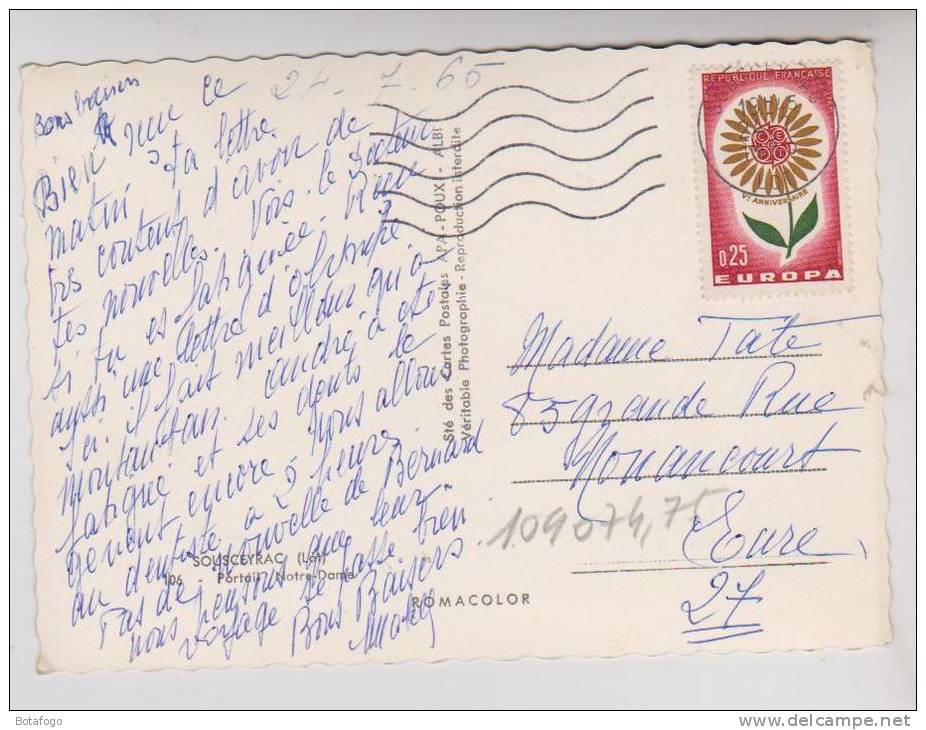 Bons baisers
24-7-65
Bien reçu ce
matin ta lettre.
très contents d'avoir de
tes nouvelles. Vois le docteur
si tu es fatiguée. Reçu
aussi une lettre d'
Ici il fait meilleur qu'à
Montauban. André a été
fatigué et ses dents le
gênent encore. Nous allons
au dentiste à 2 heures.
Pas de nouvelle de Bernard
nous pensons que leur
voyage se passe bien
Bons Baisers
SOUSCEYRAC (Lot)
106 - Portail Notre-Dame
Sté des Cartes Postales APA-POUX - ALBI
Véritable Photographie - Reproduction interdite
ROMACOLOR
REPUBLIQUE FRANÇAISE
CEPT
Ve ANNIVERSAIRE
0,25
EUROPA
Madame Tate
85 grande Rue
Nonancourt
Eure
27
109074,75
Botafogo